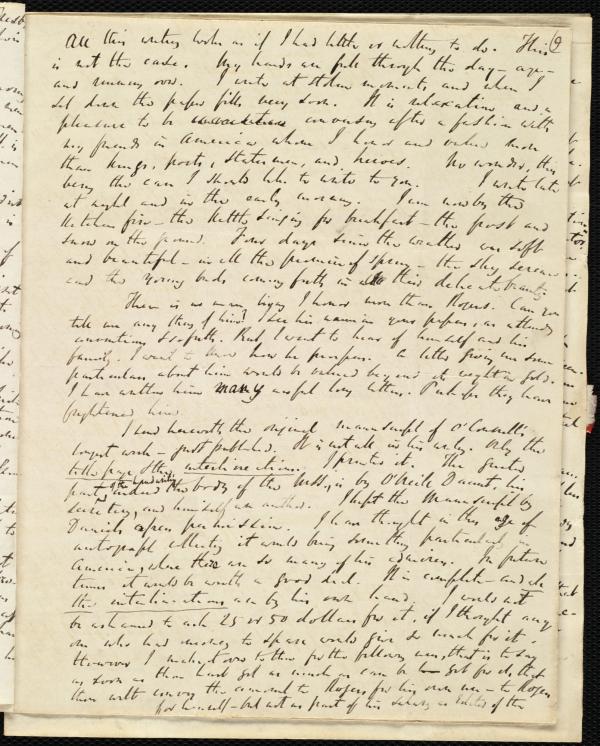 9
All this writing looks as if I had little or nothing to do. This
is not the case. My hands are full through the day - aye -
and running over. I write at stolen moments, and when I
set down the paper fills very soon. It is relaxation and a
pleasure to be conversing after a fashion with
my friends in America whom I honor and value more
than Kings, poets, statesmen, and heroes. No wonder, this
being the case I should like to write to you. I write late
at night and in the early morning. I am now by the
Kitchen fire - the Kettle singing for breakfast - the frost and
snow on the ground. Four days since the weather was soft
and beautiful - in all the promise of Spring - the sky serene
and the young buds coming forth in all their delicate beauty.
There is no man living I honor more than Rogers. Can you
tell me any thing of him? I see his name in your papers, as attending
conventions & so forth. But, I want to hear of himself and his
family. I want to know how he prospers. A letter giving me some
particulars about him would be valued beyond its weight in gold.
I have written him many awful long letters. Perhaps they have
frightened him.
I send herewith the original manuscript of O'Connell's
longest work - just published. It is not all in his writing. Only the
title page, & the interlineations. I printed it. The greater
part of the body of the MSS, is by O'Neill Daunt his
secretary, and himself an author. I kept the Manuscript by
Daniel's express permission. I have thought in this age of
autograph collecting it would bring something particularly in
America, where there are so many of his admirers. In future
times it would be worth a good deal. It is complete - and all
the interlineations are by his own hand. I would not
be ashamed to ask 25 or 50 dollars for it, if I thought any
one who had money to spare would give so much for it.
However I make it over to thee for the following uses, that is to say
as soon as thou hast got as much as can be got for it, that
thou wilt convey the amount to Rogers for his own use - to Rogers
for himself - but not as part of his salary as Editor of the